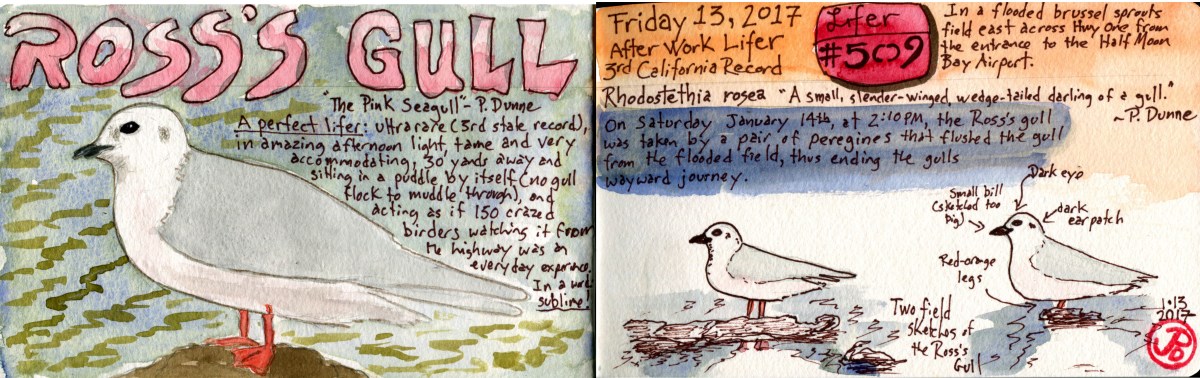 ROSS'S GULL
"The Pink Seagull" - P. Dunne
A perfect lifer: ultra rare (3rd state record),
in amazing afternoon light, tame and very
accommodating, 30 yards away and
sitting in a puddle by itself (no gull
flock to muddle through), and
acting as if 150 crazed
birders watching it from
the highway was an
everyday experience.
In a word
sublime!
Friday 13, 2017
After Work Lifer
3rd California Record
Lifer
#509
In a flooded brussel sprouts
field east across Hwy One from
the entrance to the Half Moon
Bay Airport.
Rhodostethia rosea "A small, slender-winged, wedge-tailed darling of a gull."
~ P. Dunne
On Saturday January 14th, at 2:10 PM, the Ross's gull
was taken by a pair of peregines that flushed the gull
from the flooded field, thus ending the gulls
wayward journey.
Dark eye
Small bill
(sketched too
big)
dark
ear patch
Red-orange
legs
Two field
sketches of
the Ross's
Gull
1·13
2017